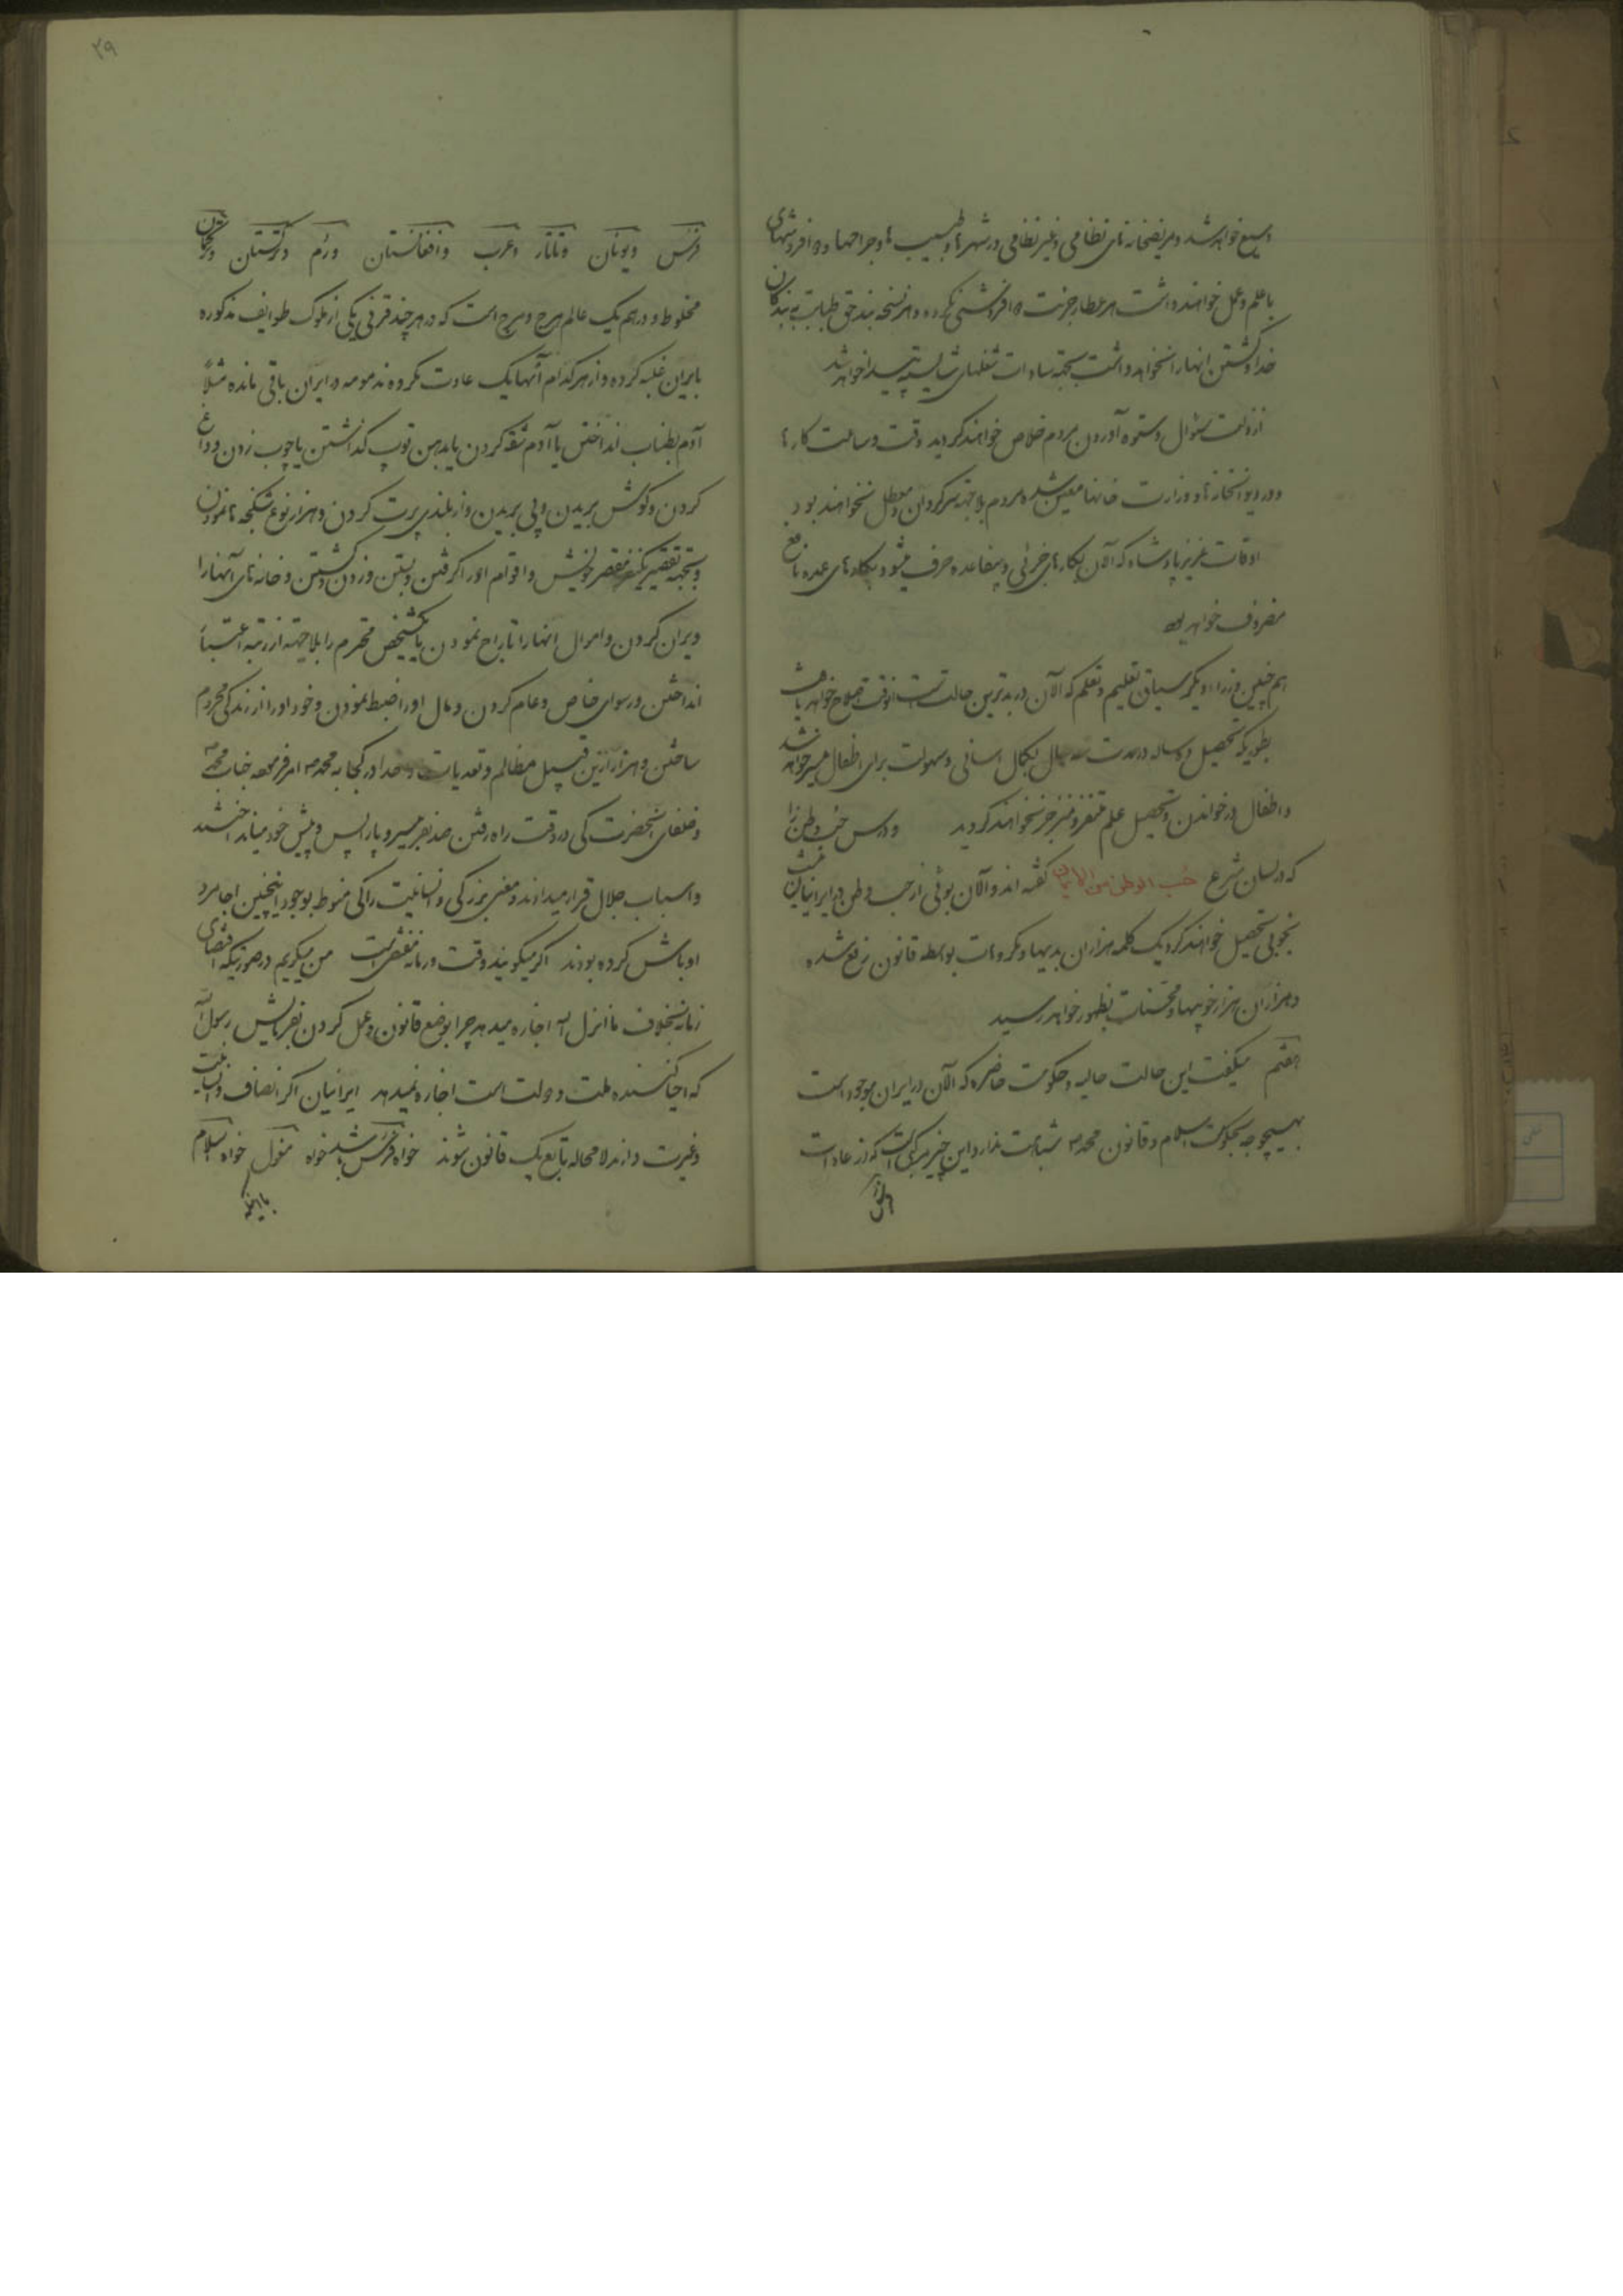 وسیع خواهد شد و مریضخانه‌های نظامی و غیر نظامی در شهرها و طبیب‌ها و جراحها و دوافروشهای
با علم و عمل خواهند داشت هر عطار جرئت دوافروشی نکرده و هر نسخه بند حق طبابت بندگان
خدا و کشتن انها را نخواهد داشت بجهة سادات شغلهای شایسته پیدا خواهد شد
از ذلت سؤال و ستوه آوردن مردم خلاص خواهند گردید وقت و ساعت کارها
در دیوانخانها و وزارت خانها معین شده مردم بلاجهة سرگردان و معطل نخواهند بود
اوقات عزیز پادشاه که الآن بکارهای جزئی و بیفایده صرف میشود بکارهای عمده نافع
مصروف خواهد بود
همچنین وزراء دیگر سیاق تعلیم و تعلم که الآن در بدترین حالت است انوقت اصلاح خواهد یافت
بطوریکه تحصیل ده ساله در مدت سه سال بکمال اسانی و سهولت برای اطفال میسر خواهد شد
و اطفال در خواندن و تحصیل علم متنفر و منزجر نخواهند گردید و درس حب وطن را
که در لسان شرع حب الوطن من الایمان گفته اند و الآن بوئی از حب وطن در ایرانیان نیست
بخوبی تحصیل خواهند کرد یک کلمه هزاران بدیها و مکروهات بواسطه قانون رفع شده
و هزاران هزار خوبیها و محسنات بظهور خواهد رسید
هفتم میگفت این حالت حالیه و حکومت حاضره که الآن در ایران موجود است
بهیچوجه بحکومت اسلام و قانون محمد ص شباهت ندارد این چیز مرکبی است که از عادات
فرس
۲۹
فرس و یونان و تاتار و عرب و افغانستان و روم و ترکستان و ترکمان
مخلوط و در هم یک عالم هرج و مرج است که در هر چند قرنی یکی از ملوک طوایف مذکوره
بایران غلبه کرده و از هر کدام آنها یک عادت مکروه مذمومه در ایران باقی مانده مثلاً
آدم بطناب انداختن یا آدم شقه کردن یا بدهن توپ گذاشتن یا چوب زدن و داغ
کردن و گوش بریدن و پی بریدن و از بلندی پرت کردن و هزار نوع شکنجه‌ها نمودن
و بجهة تقصیر یکنفر مقصر خویش و اقوام او را گرفتن و بستن و زدن و کشتن و خانه‌های آنها را
ویران کردن و اموال انها را تاراج نمودن یا یکشخص محترم را بلاجهة از رتبه اعتبار
انداختن و رسوای خاص و عام کردن و مال او را ضبط نمودن و خود او را از زندگی محروم
ساختن و هزار ازین قبیل مظالم و تعدیات خدا در کجا به محمد ص امر فرموده جناب محمد ص
و خلفای آنحضرت کی در وقت راه رفتن صد نفر میر و پا را پس و پیش خود میانداختند
و اسباب جلال قرار میدادند و معنی بزرگی و انسانیت را کی منوط بوجود اینچنین اجامر و
اوباش کرده بودند اگر میگویند وقت و زمانه مقتضی است من میگویم در صورتیکه اقتضای
زمانه بخلاف ما انزل الله اجازه میدهد چرا بوضع قانون و عمل کردن بفرمایش رسول الله
که احیا کننده ملت و دولت است اجازه نمیدهد ایرانیان اگر انصاف و انسانیت
و غیرت دارند لامحاله تابع یک قانون شوند خواه فرس باشد خواه مغول خواه اسلام
با اینکه